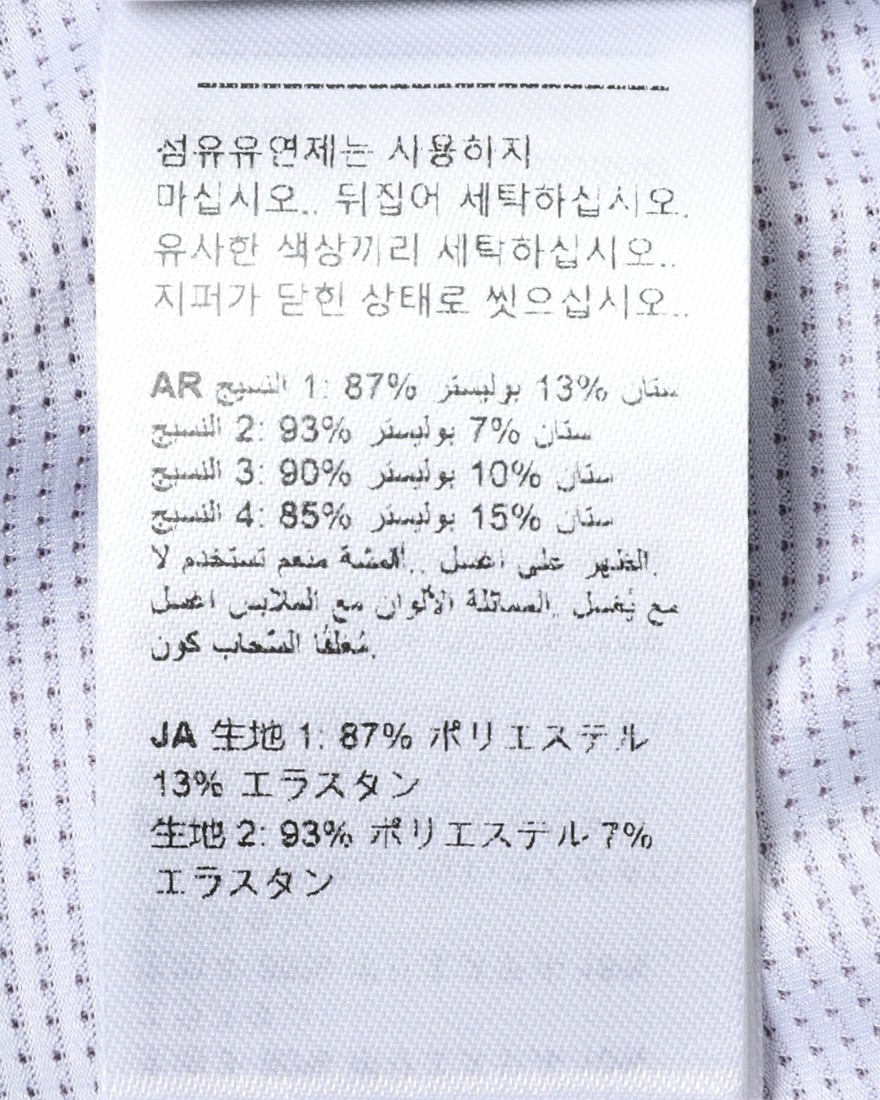 섬유유연제는 사용하지
마십시오.. 뒤집어 세탁하십시오.
유사한 색상끼리 세탁하십시오..
지퍼가 닫힌 상태로 씻으십시오..
AR النسيج 1: 87% بوليستر 13% ستان
النسيج 2: 93% بوليستر 7% ستان
النسيج 3: 90% بوليستر 10% ستان
النسيج 4: 85% بوليستر 15% ستان
لا تستخدم منعم اغسل على الظهر.
اغسل الملابس مع الألوان المماثلة. يُغسل مع
كون السّحاب مُغلقًا.
JA 生地 1: 87% ポリエステル
13% エラスタン
生地 2: 93% ポリエステル 7%
エラスタン